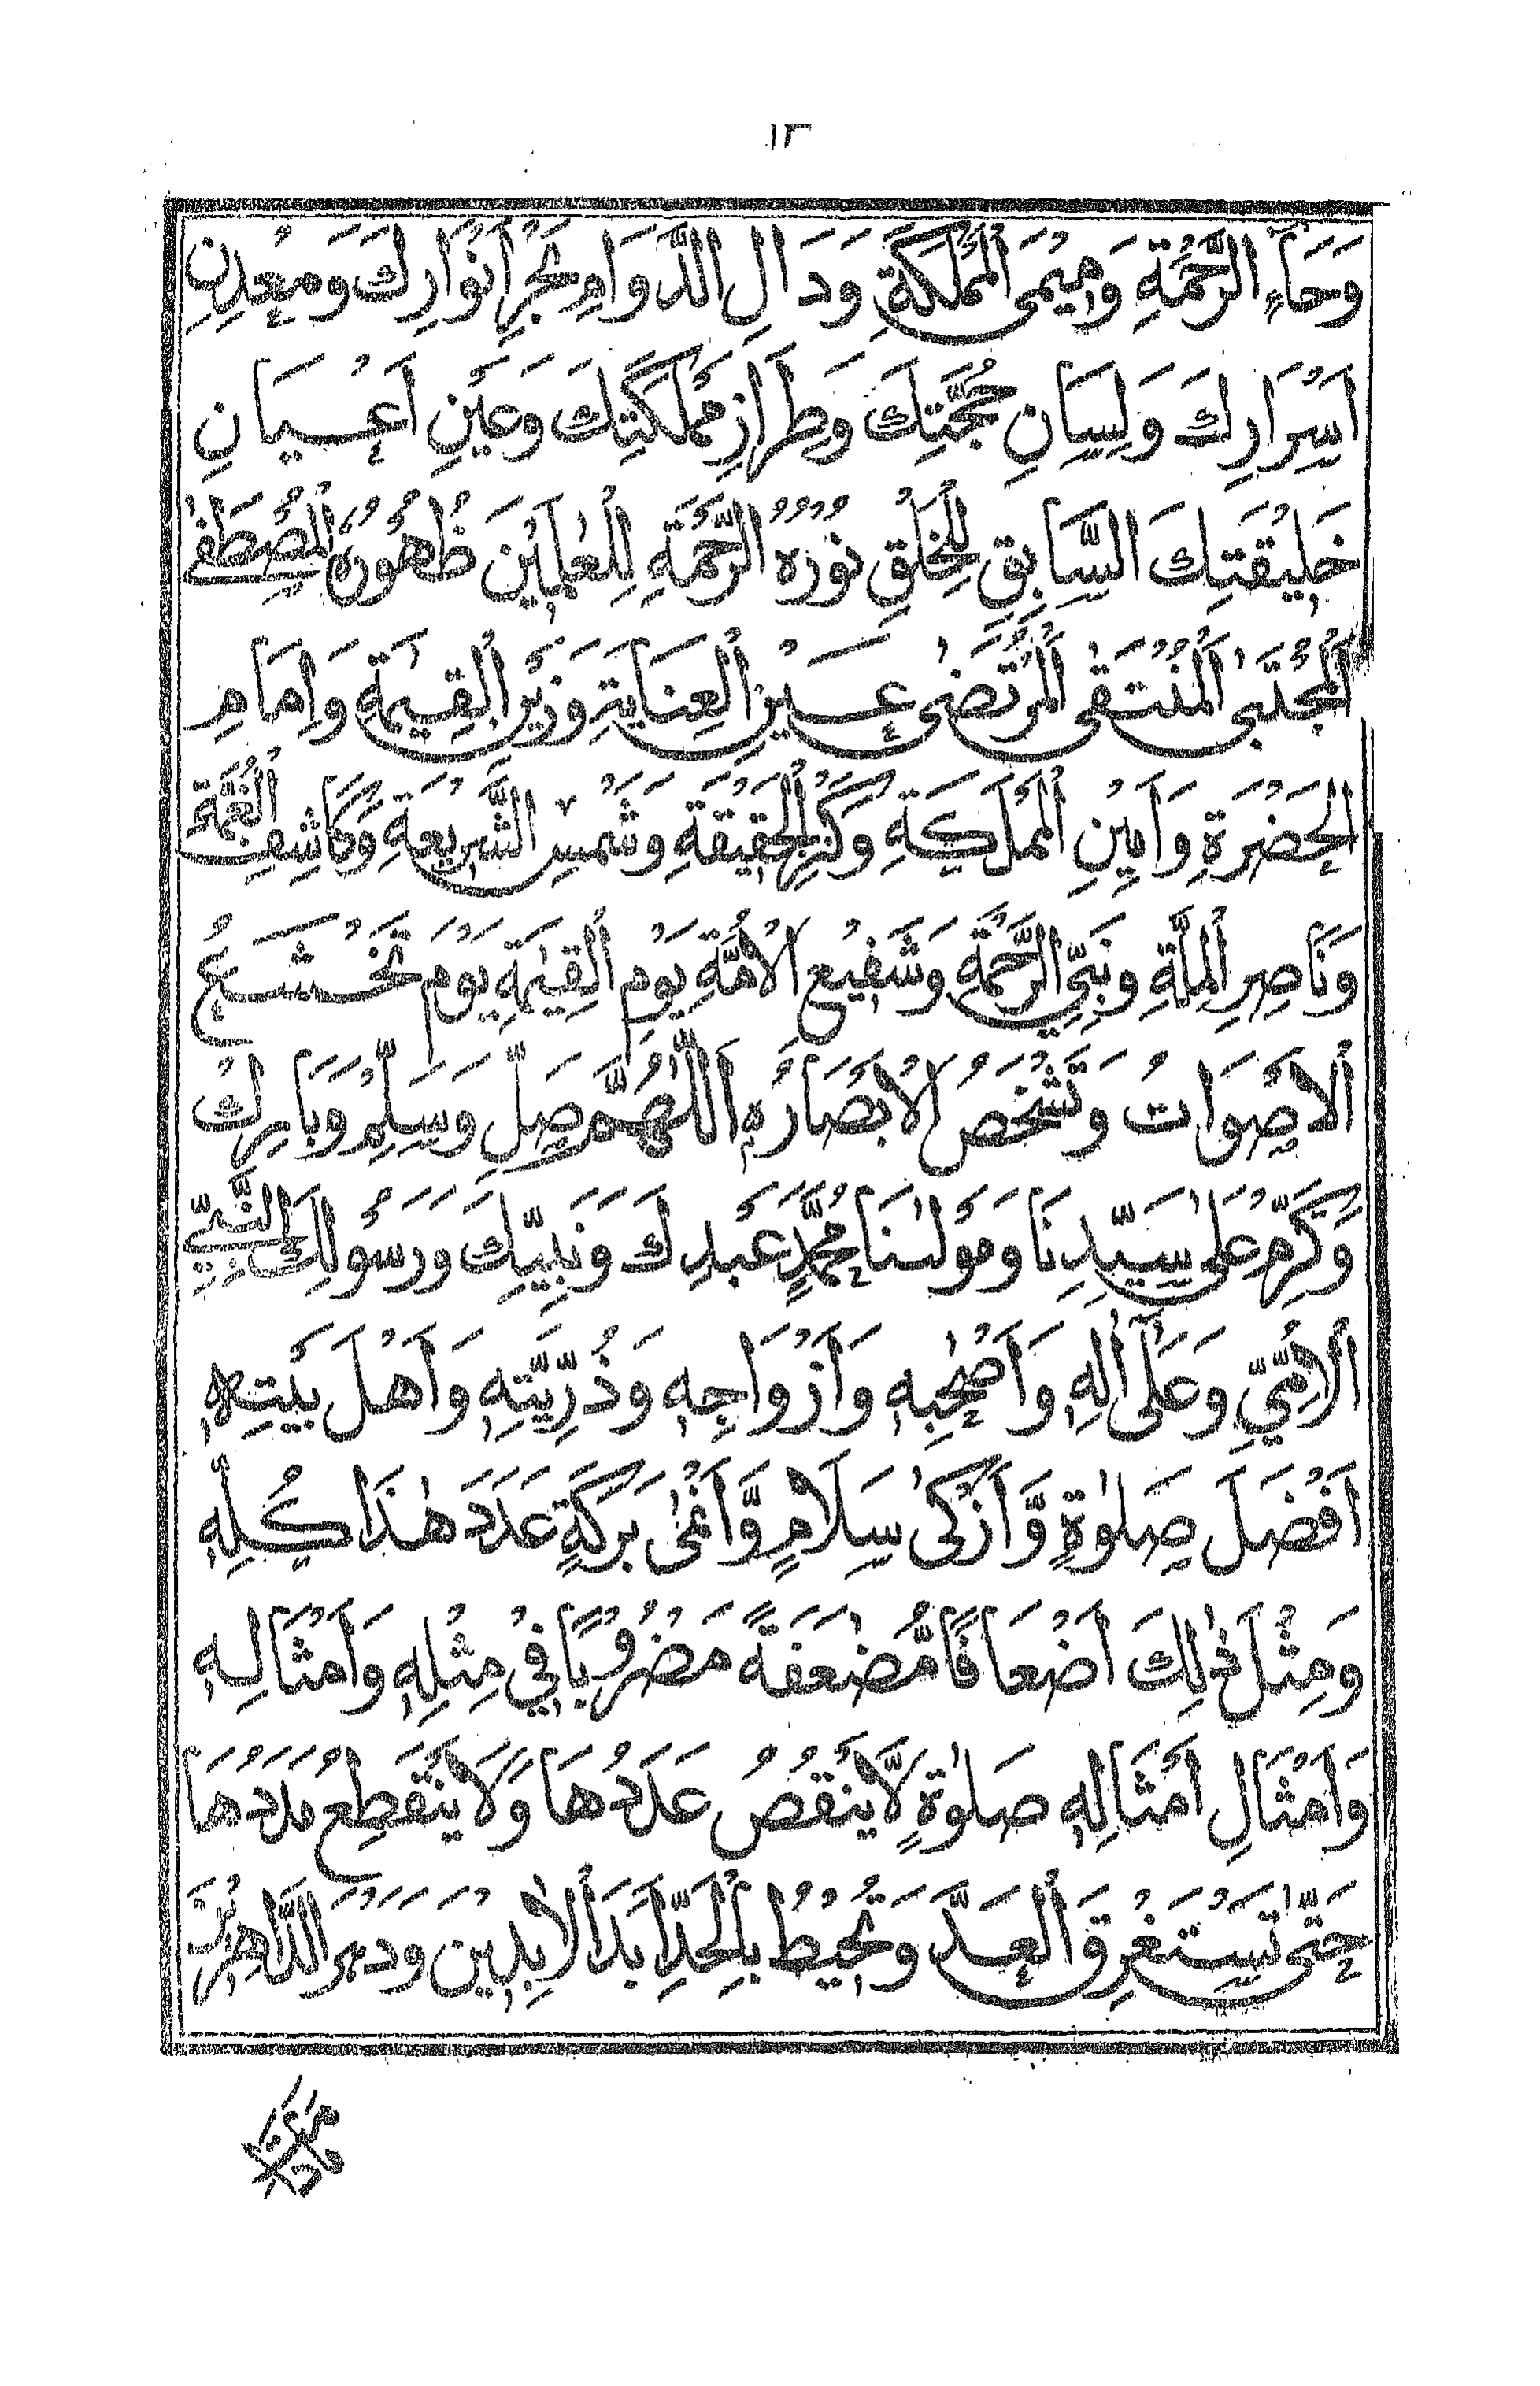 ١٣
وَحَاءِ الرَّحْمَةِ وَمِيْمَيِ الْمَمْلَكَةِ وَدَالِ الدَّوَامِ بَحْرِ اَنْوَارِكَ وَمَعْدِنِ
اَسْرَارِكَ وَلِسَانِ حُجَّتِكَ وَطِرَازِ مَمْلَكَتِكَ وَعَيْنِ اَعْيَانِ
خَلِيْقَتِكَ السَّابِقِ لِلْخَلْقِ نُوْرُهُ الرَّحْمَةِ لِلْعٰلَمِيْنَ ظُهُوْرُهُ الْمُصْطَفٰى
الْمُجْتَبٰى الْمُنْتَقٰى الْمُرْتَضٰى عَيْنِ الْعِنَايَةِ وَزَيْنِ الْقِيٰمَةِ وَاِمَامِ
الْحَضْرَةِ وَاَمِيْنِ الْمَمْلَكَةِ وَكَنْزِ الْحَقِيْقَةِ وَشَمْسِ الشَّرِيْعَةِ وَكَاشِفِ الْغُمَّةِ
وَنَاصِرِ الْمِلَّةِ وَنَبِيِّ الرَّحْمَةِ وَشَفِيْعِ الْاُمَّةِ يَوْمَ الْقِيٰمَةِ يَوْمَ تَخْشَعُ
الْاَصْوَاتُ وَتَشْخَصُ الْاَبْصَارُ ه اَللّٰهُمَّ صَلِّ وَسَلِّمْ وَبَارِكْ
وَكَرِّمْ عَلٰى سَيِّدِنَا وَمَوْلٰىنَا مُحَمَّدٍ عَبْدِكَ وَنَبِيِّكَ وَرَسُوْلِكَ النَّبِيِّ
الْاُمِّيِّ وَعَلٰٓى اٰلِهٖ وَاَصْحٰبِهٖ وَاَزْوَاجِهٖ وَذُرِّيَّتِهٖ وَاَهْلَ بَيْتِهٖ
اَفْضَلَ صَلٰوةٍ وَّاَزْكٰى سَلَامٍ وَّاَنْمٰى بَرَكَةٍ عَدَدَ هٰذَا كُلِّهٖ
وَمِثْلَ ذٰلِكَ اَضْعَافًا مُّضٰعَفَةً مَضْرُوْبًا فِيْ مِثْلِهٖ وَاَمْثَالِهٖ
وَاَمْثَالِ اَمْثَالِهٖ صَلٰوةٍ لَّا يَنْقُصُ عَدَدُهَا وَلَا يَنْقَطِعُ مَدَدُهَا
حَتّٰى تَسْتَغْرِقَ الْعَدَّ وَتُحِيْطُ بِالْحَدِّ اَبَدَ الْاٰبِدِيْنَ وَدَهْرَ الدَّاهِرِيْنَ